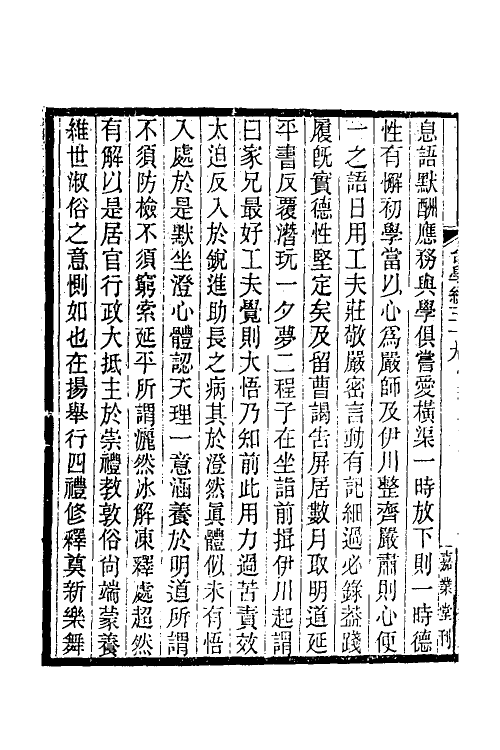 息語默酬應務與學俱嘗愛橫渠一時放下則一時德
性有懈初學當以心爲嚴師及伊川整齊嚴肅則心便
一之語日用工夫莊敬嚴密言動有記細過必錄葢踐
履旣實德性堅定矣及留曹謁告屏居數月取明道延
平書反覆潛玩一夕夢二程子在坐詣前揖伊川起謂
曰家兄最好工夫覺則大悟乃知前此用力過苦責效
太迫反入於銳進助長之病其於澄然眞體似未有悟
入處於是默坐澄心體認天理一意涵養於明道所謂
不須防檢不須窮索延平所謂灑然冰解凍釋處超然
有解以是居官行政大抵主於崇禮教敦俗尙端蒙養
維世淑俗之意惻如也在揚舉行四禮修釋奠新樂舞
台學統三十九
嘉業堂刊